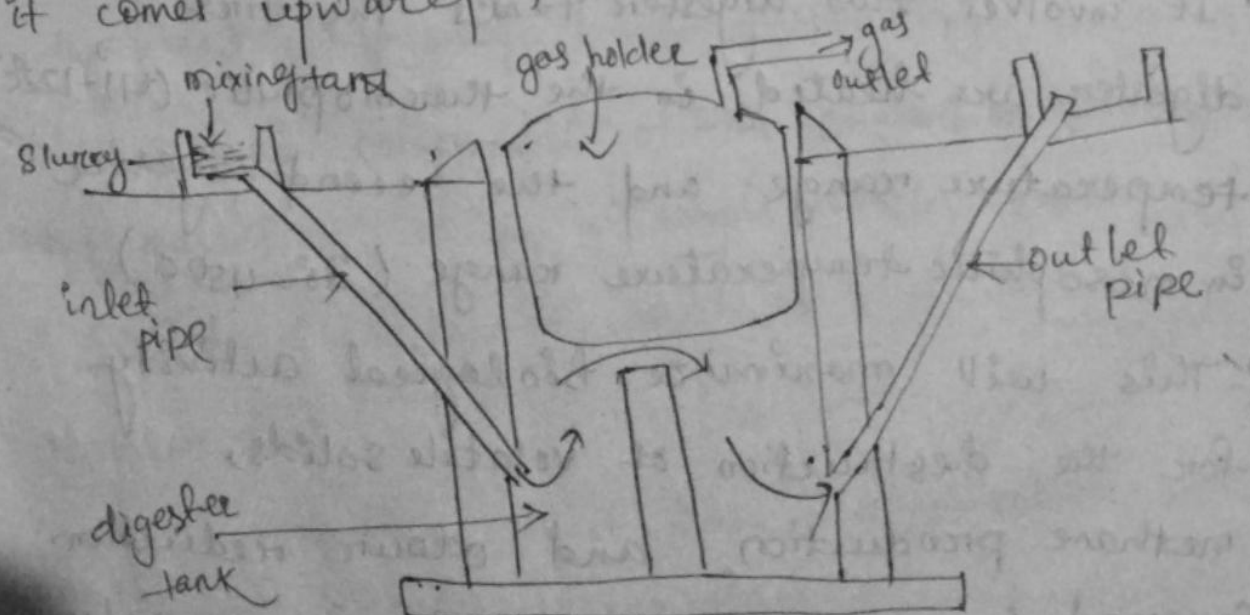 it comes upward
mixing tank
gas holder
gas
outlet
slurry
inlet
pipe
outlet
pipe
digester
tank